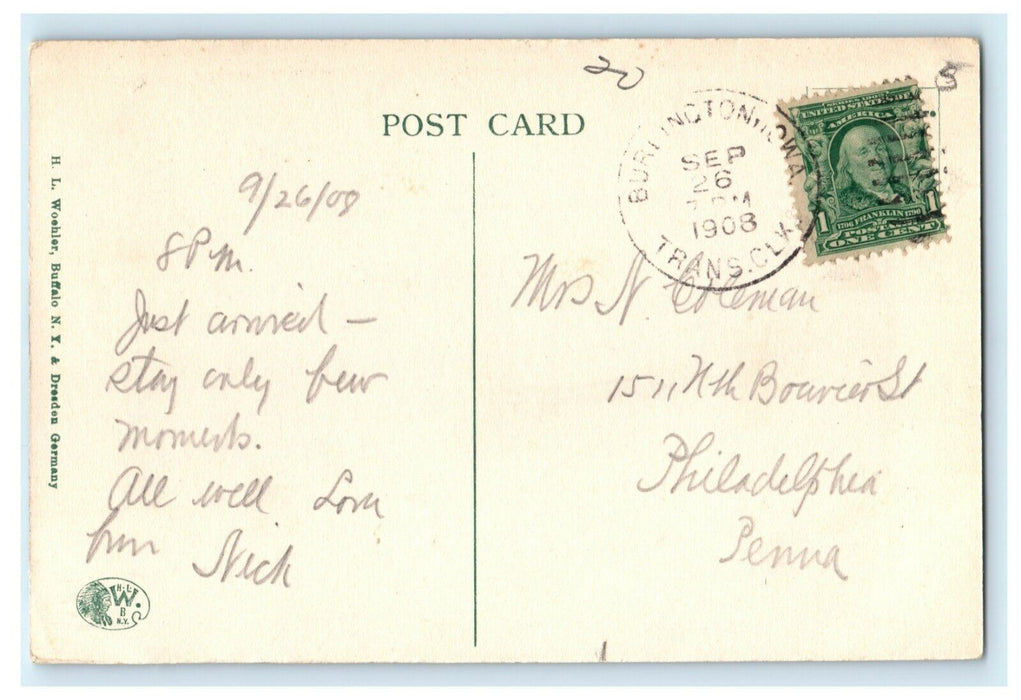 20
5
POST CARD
BURLINGTON, IOWA
SEP
26
1908
TRANS. CLK.
UNITED STATES OF
AMERICA
1706 FRANKLIN 1790
POSTAGE
1 1
ONE CENT
H. L. Woehler, Buffalo N. Y. & Dresden Germany
9/26/08
8 P.M.
Just arrived —
stay only few
moments.
All well Love
from Nick
Mrs N. Coleman
1511 Nth Bouvier St
Philadelphia
Penna
W.
B
N.Y.